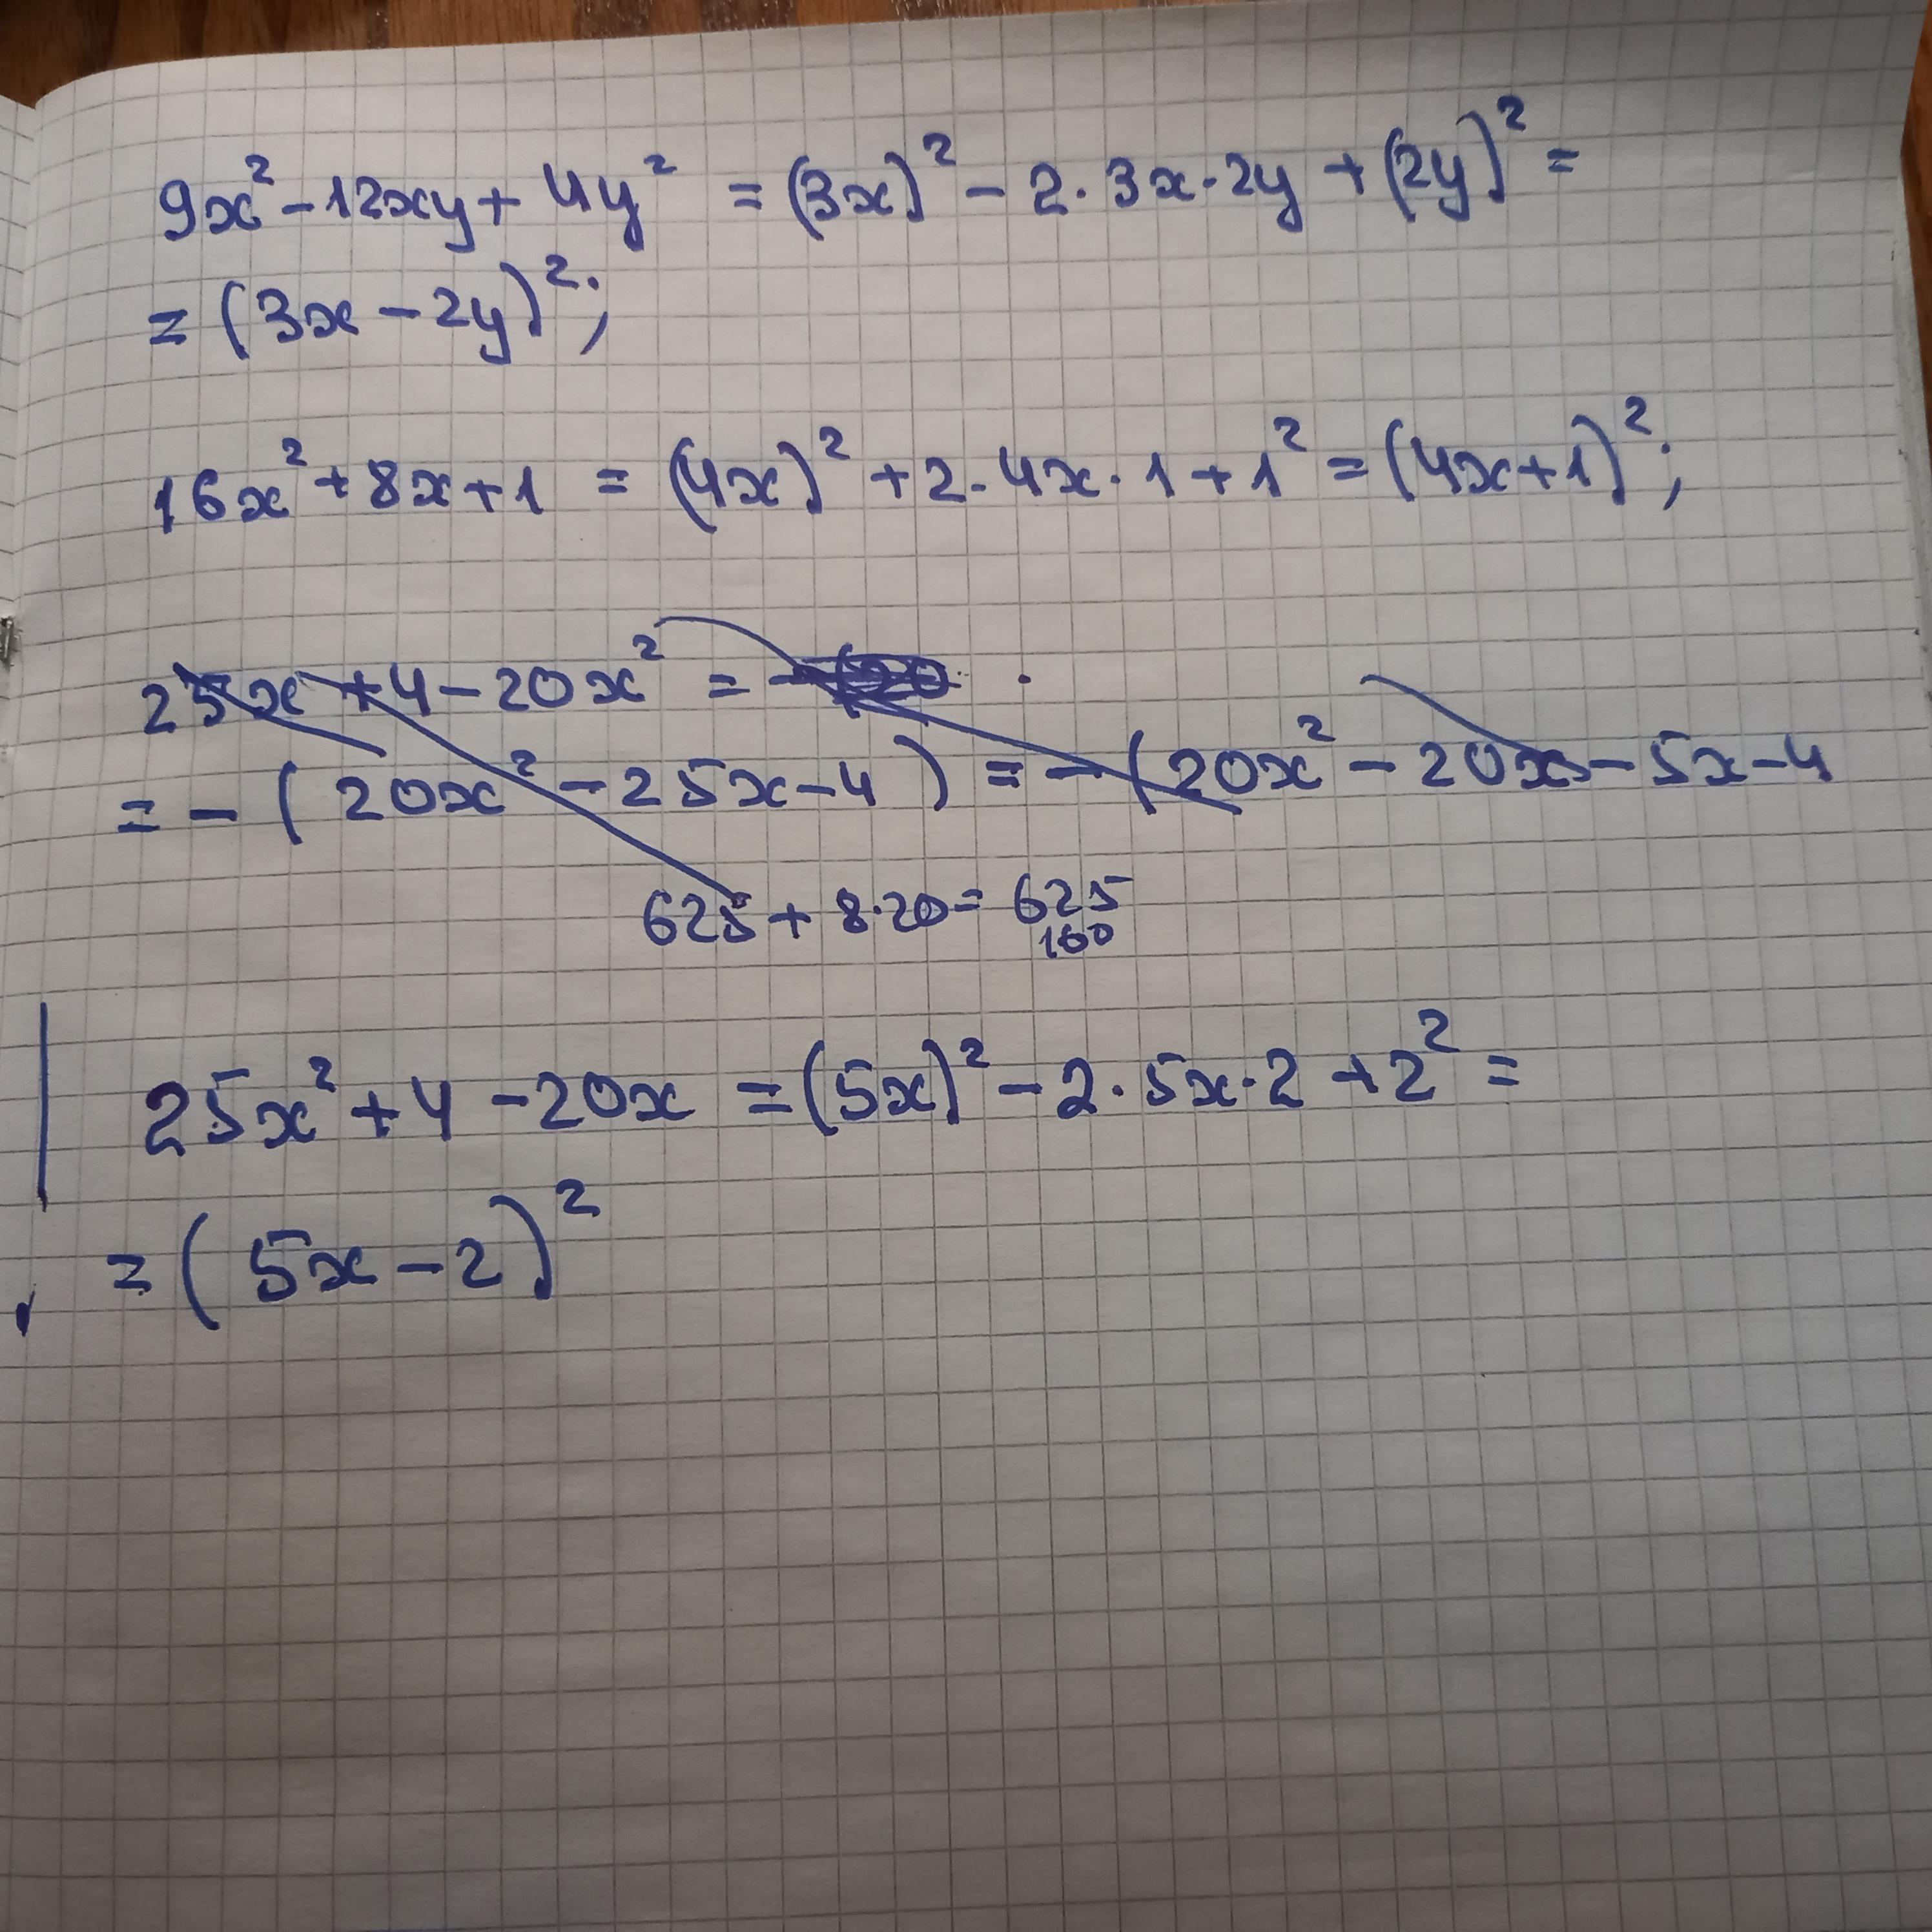 9x² - 12xy + 4y² = (3x)² - 2·3x·2y + (2y)² =
= (3x - 2y)²;
16x² + 8x + 1 = (4x)² + 2·4x·1 + 1² = (4x+1)²;
25x + 4 - 20x² =
= - (20x² - 25x - 4) = - (20x² - 20x - 5x - 4
625 + 8·20 = 625
160
25x² + 4 - 20x = (5x)² - 2·5x·2 + 2² =
= (5x - 2)²